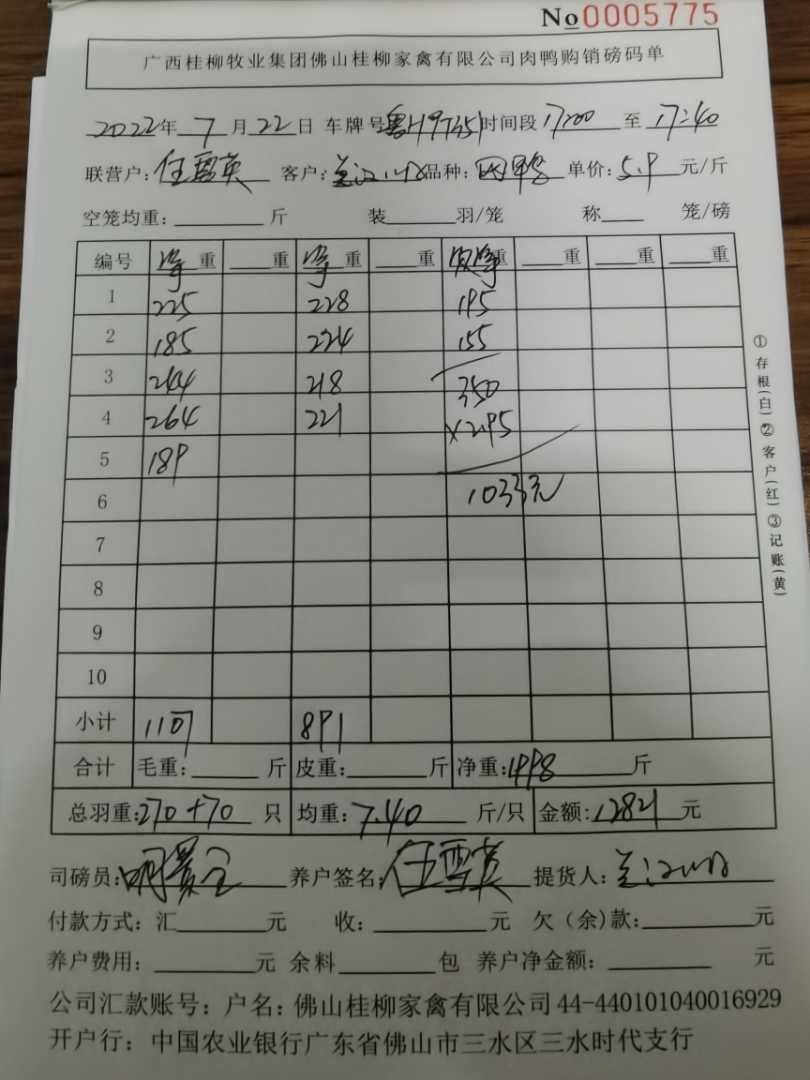 No0005775
广西桂柳牧业集团佛山桂柳家禽有限公司肉鸭购销磅码单
2022年 7 月 22 日 车牌号 时间段 17:00 至 17:40
联营户: 任雪英 客户: 品种: 肉鸭 单价: 5.9 元/斤
空笼均重: 斤 装 羽/笼 称 笼/磅
编号 净重 重 净重 重 重 重 重 重
1 225 228 195
2 185 224 155
3 244 218 350
4 264 221 ×2.95
5 189
6 1033元
7
8
9
10
小计 1107 891
合计 毛重: 斤 皮重: 斤 净重: 1998 斤
总羽重: 270+70 只 均重: 7.40 斤/只 金额: 12821 元
司磅员: 养户签名: 任雪英 提货人:
付款方式: 汇 元 收: 元 欠（余）款: 元
养户费用: 元 余料 包 养户净金额: 元
公司汇款账号: 户名: 佛山桂柳家禽有限公司 44-440101040016929
开户行: 中国农业银行广东省佛山市三水区三水时代支行
①存根(白)②客户(红)③记账(黄)